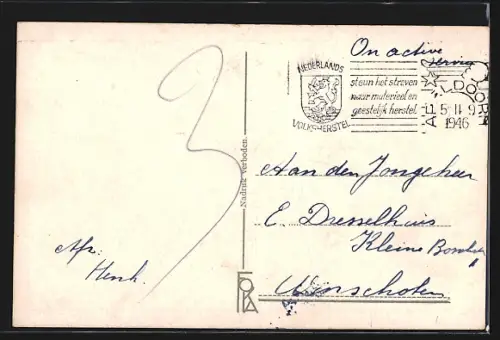 On active
service
NEDERLANDS
VOLKSHERSTEL
steun het streven
naar materieel en
geestelijk herstel
5 II 9
1946
3
Nadruk verboden.
Aan den Jongeheer
E. Dresselhuis
Kleine
Winschoten
Afz:
Henk.
FOKA